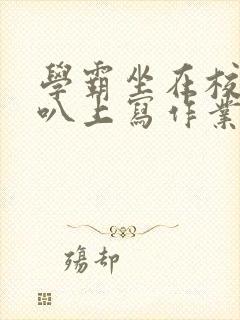 學霸坐在校
叭上寫作業
殤却